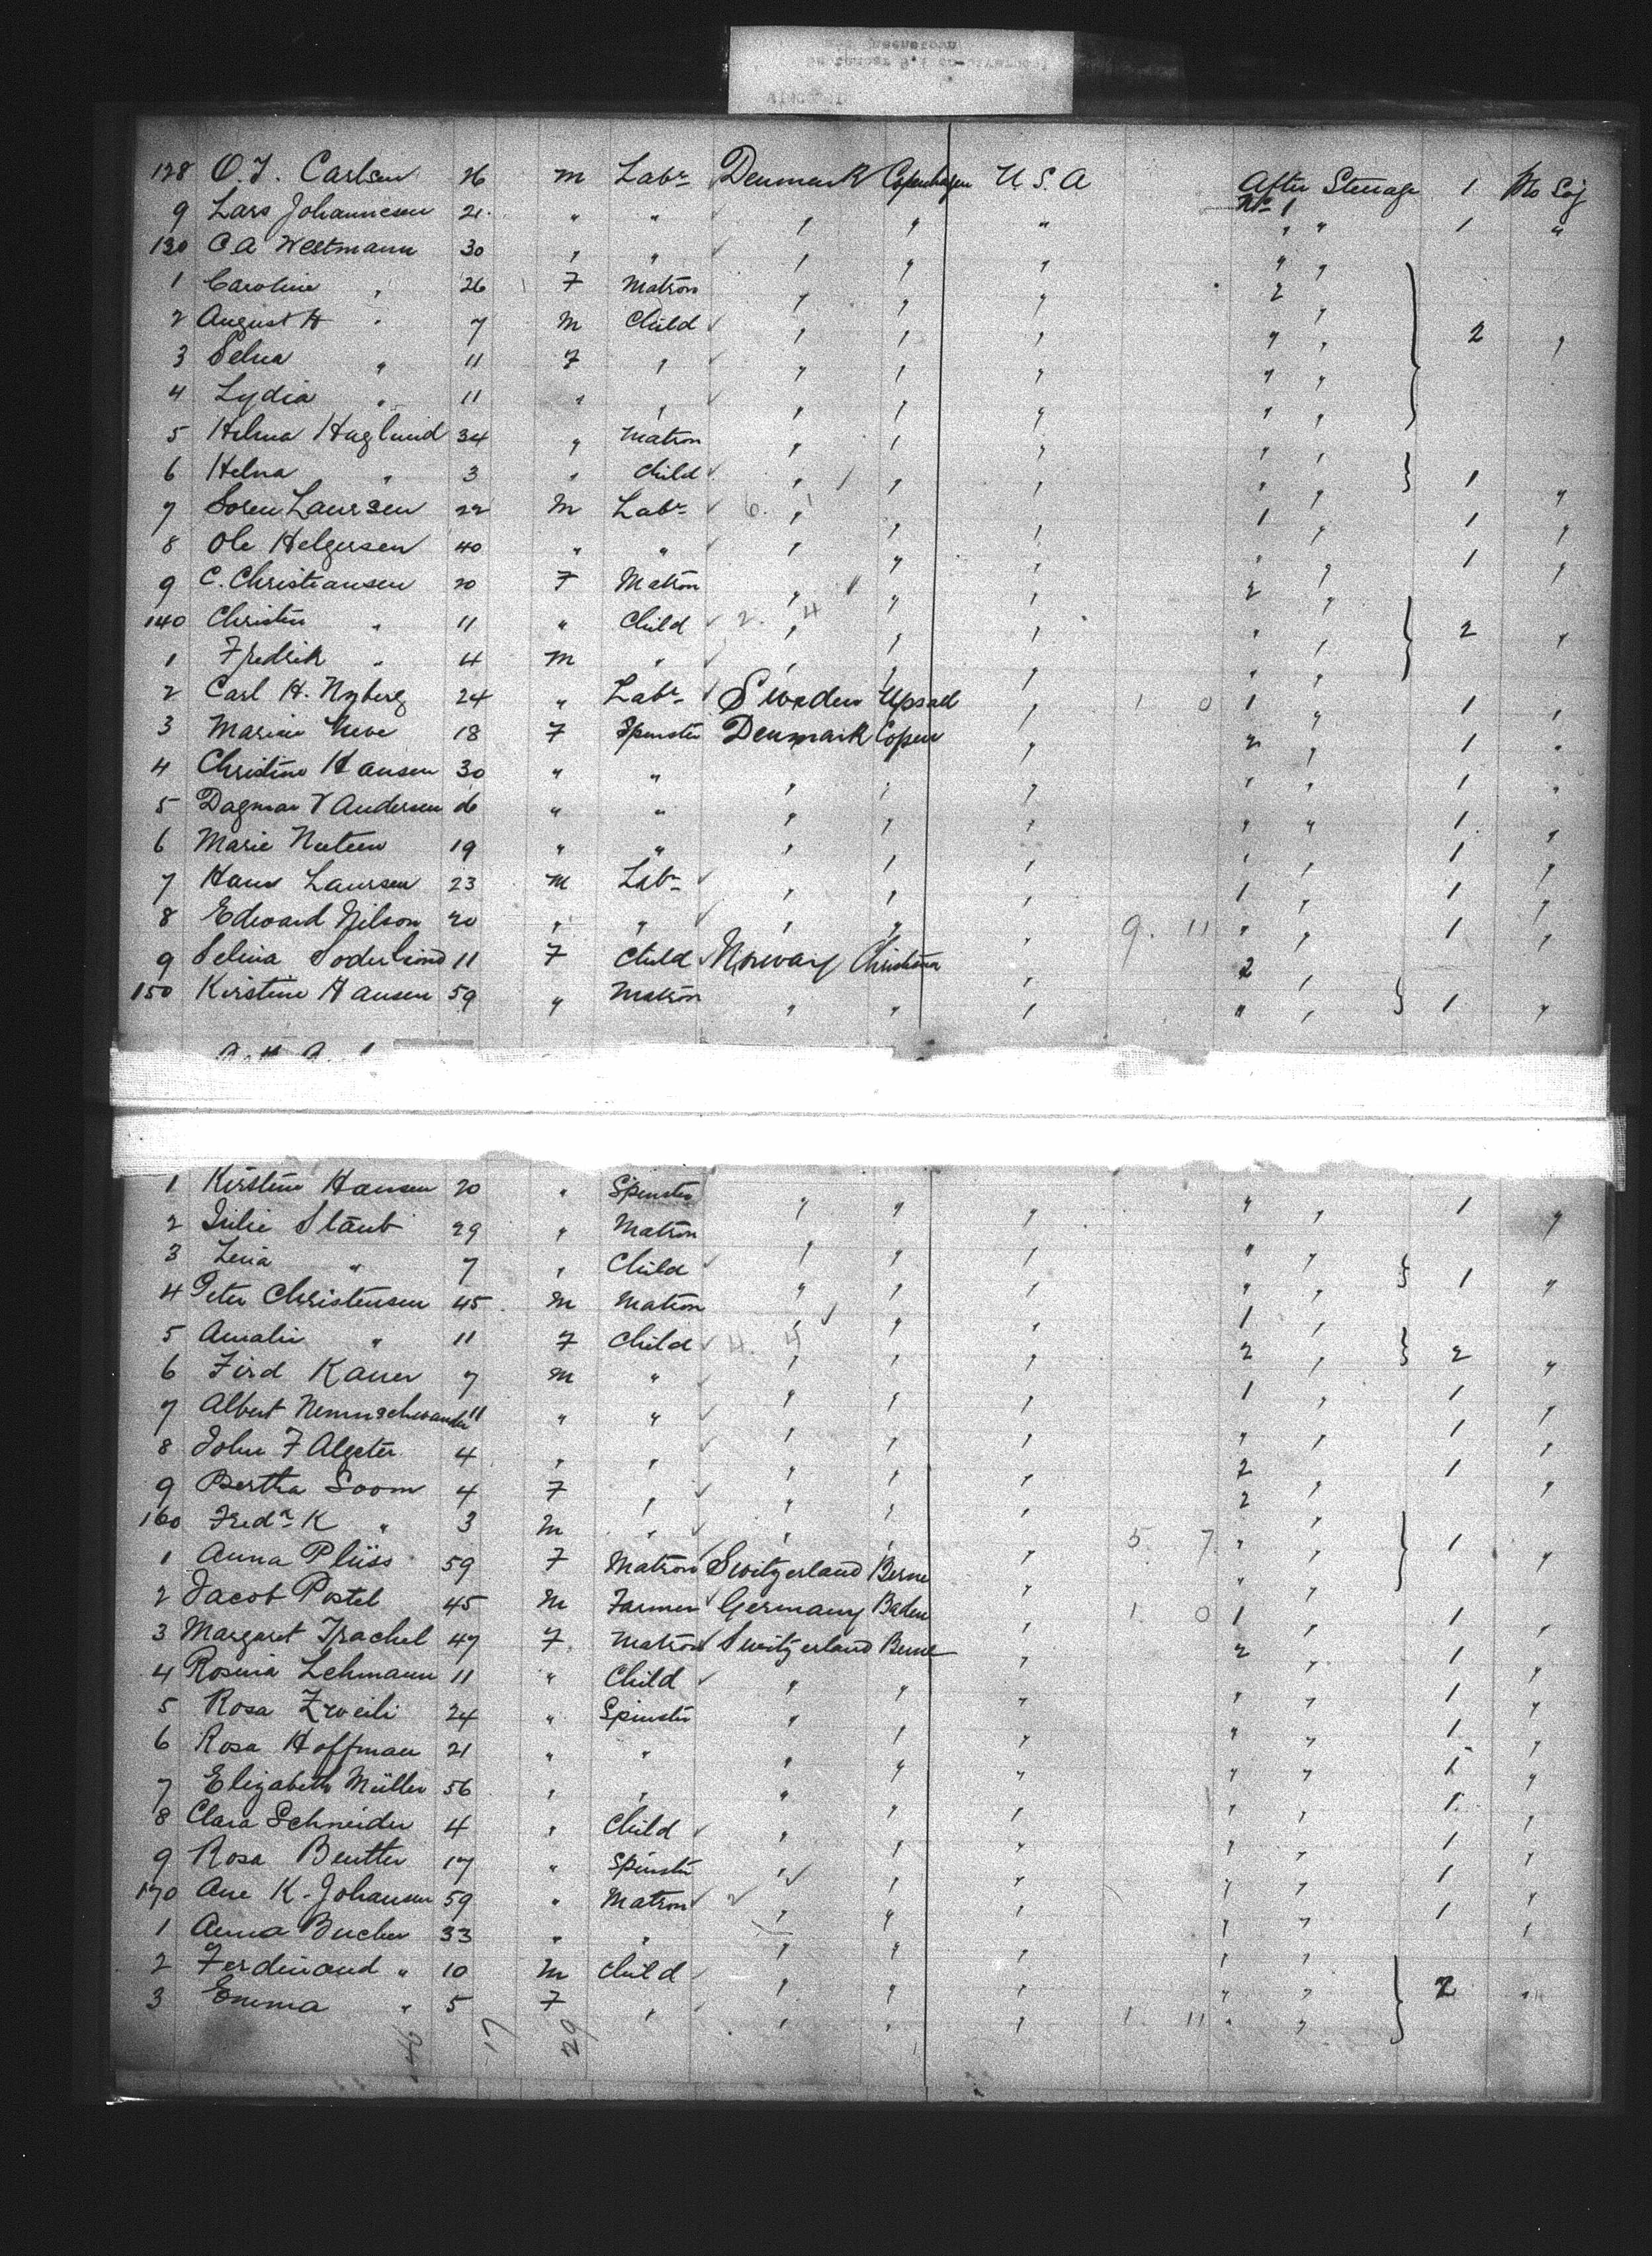 128 O.J. Carlsen 26 m Labr Denmark Copenhagen U.S.A After Steerage No 1 1 No Soj
9 Lars Johannesen 21 " " " " " " " 1 "
130 C A Westmann 30 " " " " " " "
1 Caroline " 26 F Matron " " " 2 "
2 August H " 7 m Child " " " " " 2 "
3 Selna " 11 F " " " " " "
4 Lydia " 11 " " " " " " "
5 Hilma Haglund 34 " Matron " " " " "
6 Helna " 3 " Child " " " " " 1 "
7 Soren Laursen 22 m Labr 6. 1 " " " 1 " 1 "
8 Ole Helgersen 40 " " " " " " " 1 "
9 C. Christiansen 20 F Matron " " " 2 "
140 Christin " 11 " Child 2. 4 " " " " " 2 "
1 Fredrik " 4 m " " " " " "
2 Carl H. Nyberg 24 " Labr Sweden Upsal " 1 0 1 " 1 "
3 Marie 18 F Spinster Denmark Copen " 2 " 1 "
4 Christine Hansen 30 " " " " " " " 1 "
5 Dagmar V Andersen " " " " " " " 1 "
6 Marie 19 " " " " " " " 1 "
7 Hans Laursen 23 m Labr " " " 1 " 1 "
8 Edward Nilson 20 " " " " " 9. 11 " " 1 "
9 Selina Soderlind 11 F Child Norway Christiana " 2 "
150 Kirstine Hansen 59 " Matron " " " " " 1 "
1 Kirstine Hansen 20 " Spinster " " " " " 1 "
2 Julie Staub 29 " Matron " " " " "
3 Lena " 7 " Child " " " " " 1 "
4 Peter Christensen 45 m Matron " " " 1 "
5 Amalie " 11 F Child 4. 4 " " " 2 " 2 "
6 Ferd Kauer 7 m " " " " 1 " 1 "
7 Albert Nennschwander 11 " " " " " " " 1 "
8 John F Algeter 4 " " " " " 2 " 1 "
9 Bertha Soom 4 F " " " " 2 "
160 Fredk K " 3 m " " " " 5. 7 " " 1 "
1 Anna Plüss 59 F Matron Switzerland Berne " " "
2 Jacob Postel 45 m Farmer Germany Baden " 1. 0 1 " 1 "
3 Margaret Trachel 47 F Matron Switzerland Berne " 2 " 1 "
4 Rosina Lehmann 11 " Child " " " " " 1 "
5 Rosa Zweili 24 " Spinster " " " " " 1 "
6 Rosa Hoffman 21 " " " " " " " 1 "
7 Elizabeth Müller 56 " " " " " " " 1 "
8 Clara Schneider 4 " Child " " " " " 1 "
9 Rosa Beutter 17 " Spinster " " " " " 1 "
170 Ane K. Johansen 59 " Matron 2 " " " " " 1 "
1 Anna Bucher 33 " " " " " " "
2 Ferdinand " 10 m Child " " " " " 2 "
3 Emma " 5 F " " " " 1. 11 " "
46 17 29